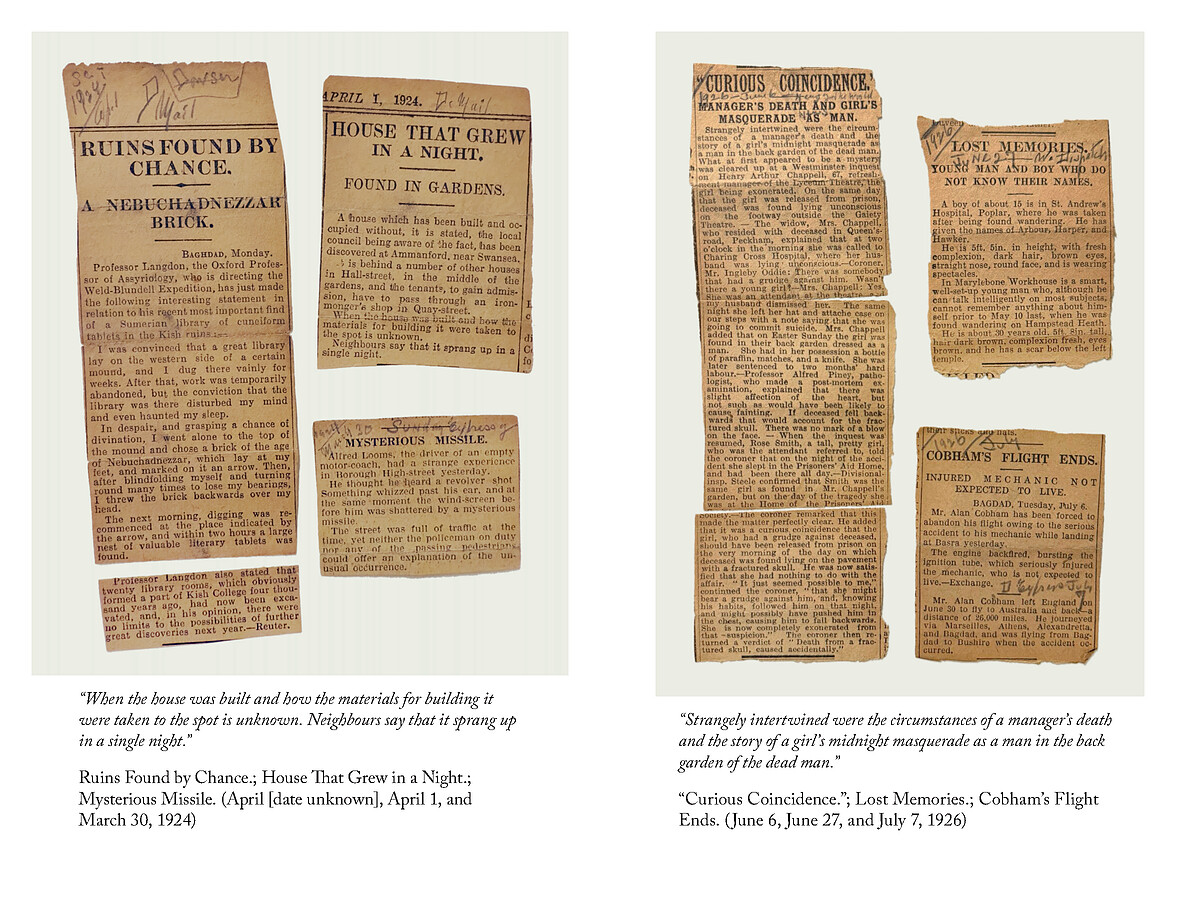 Sci
1924
D. Mail
Dowser
RUINS FOUND BY
CHANCE.
A NEBUCHADNEZZAR
BRICK.
BAGHDAD, Monday.
Professor Langdon, the Oxford Profes-
sor of Assyriology, who is directing the
Weld-Blundell Expedition, has just made
the following interesting statement in
relation to his recent most important find
of a Sumerian library of cuneiform
tablets in the Kish ruins:—
I was convinced that a great library
lay on the western side of a certain
mound, and I dug there vainly for
weeks. After that, work was temporarily
abandoned, but the conviction that the
library was there disturbed my mind
and even haunted my sleep.
In despair, and grasping a chance of
divination, I went alone to the top of
the mound and chose a brick of the age
of Nebuchadnezzar, which lay at my
feet, and marked on it an arrow. Then,
after blindfolding myself and turning
round many times to lose my bearings,
I threw the brick backwards over my
head.
The next morning, digging was re-
commenced at the place indicated by
the arrow, and within two hours a large
nest of valuable literary tablets was
found.
Professor Langdon also stated that
twenty library rooms, which obviously
formed a part of Kish College four thou-
sand years ago, had now been exca-
vated, and, in his opinion, there were
no limits to the possibilities of further
great discoveries next year.—Reuter.
APRIL 1, 1924. D. Mail
HOUSE THAT GREW
IN A NIGHT.
FOUND IN GARDENS.
A house which has been built and oc-
cupied without, it is stated, the local
council being aware of the fact, has been
discovered at Ammanford, near Swansea.
It is behind a number of other houses
in Hall-street, in the middle of the
gardens, and the tenants, to gain admis-
sion, have to pass through an iron-
monger's shop in Quay-street.
When the house was built and how the
materials for building it were taken to
the spot is unknown.
Neighbours say that it sprang up in a
single night.
Sunday Express
MYSTERIOUS MISSILE.
Alfred Looms, the driver of an empty
motor-coach, had a strange experience
in Borough High-street yesterday.
He thought he heard a revolver shot
Something whizzed past his ear, and at
the same moment the wind-screen be-
fore him was shattered by a mysterious
missile.
The street was full of traffic at the
time, yet neither the policeman on duty
nor any of the passing pedestrians
could offer an explanation of the un-
usual occurrence.
"When the house was built and how the materials for building it
were taken to the spot is unknown. Neighbours say that it sprang up
in a single night."
Ruins Found by Chance.; House That Grew in a Night.;
Mysterious Missile. (April [date unknown], April 1, and
March 30, 1924)
"CURIOUS COINCIDENCE."
1926 - June
MANAGER'S DEATH AND GIRL'S
MASQUERADE AS MAN.
Strangely intertwined were the circum-
stances of a manager's death and the
story of a girl's midnight masquerade as
a man in the back garden of the dead man.
What at first appeared to be a mystery
was cleared up at a Westminster inquest
on Henry Arthur Chappell, 67, refresh-
ment manager of the Lyceum Theatre, the
girl being exonerated. On the same day
that the girl was released from prison,
deceased was found lying unconscious
on the footway outside the Gaiety
Theatre. — The widow, Mrs. Chappell,
who resided with deceased in Queen's-
road, Peckham, explained that at two
o'clock in the morning she was called to
Charing Cross Hospital, where her hus-
band was lying unconscious.—Coroner,
Mr. Ingleby Oddie: There was somebody
that had a grudge against him. Wasn't
there a young girl?—Mrs. Chappell: Yes.
She was an attendant at the theatre
my husband dismissed her. The same
night she left her hat and attache case on
our steps with a note saying that she was
going to commit suicide. Mrs. Chappell
added that on Easter Sunday the girl was
found in their back garden dressed as a
man. She had in her possession a bottle
of paraffin, matches, and a knife. She was
later sentenced to two months' hard
labour.—Professor Alfred Piney, patho-
logist, who made a post-mortem ex-
amination, explained that there was
slight affection of the heart, but
not such as would have been likely to
cause fainting. If deceased fell back-
wards that would account for the frac-
tured skull. There was no mark of a blow
on the face. — When the inquest was
resumed, Rose Smith, a tall, pretty girl,
who was the attendant referred to, told
the coroner that on the night of the acci-
dent she slept in the Prisoners' Aid Home,
and had been there all day.—Divisional-
insp. Steele confirmed that Smith was the
same girl as found in Mr. Chappell's
garden, but on the day of the tragedy she
was at the Home of the Prisoners' Aid
Society.—The coroner remarked that this
made the matter perfectly clear. He added
that it was a curious coincidence that the
girl, who had a grudge against deceased,
should have been released from prison on
the very morning of the day on which
deceased was found lying on the pavement
with a fractured skull. He was now satis-
fied that she had nothing to do with the
affair. "It just seemed possible to me,"
continued the coroner, "that she might
bear a grudge against him, and, knowing
his habits, followed him on that night
and might possibly have pushed him in
the chest, causing him to fall backwards.
She is now completely exonerated from
that suspicion." The coroner then re-
turned a verdict of "Death from a frac-
tured skull, caused accidentally."
1926
LOST MEMORIES.
June 27 - W. Dispatch
YOUNG MAN AND BOY WHO DO
NOT KNOW THEIR NAMES.
A boy of about 15 is in St. Andrew's
Hospital, Poplar, where he was taken
after being found wandering. He has
given the names of Arbour, Harper, and
Hawker.
He is 5ft. 5in. in height, with fresh
complexion, dark hair, brown eyes,
straight nose, round face, and is wearing
spectacles.
In Marylebone Workhouse is a smart,
well-set-up young man who, although he
can talk intelligently on most subjects,
cannot remember anything about him-
self prior to May 10 last, when he was
found wandering on Hampstead Heath.
He is about 30 years old, 5ft. 8in. tall,
hair dark brown, complexion fresh, eyes
brown, and he has a scar below the left
temple.
their sticks and hats.
1926 July
COBHAM'S FLIGHT ENDS.
INJURED MECHANIC NOT
EXPECTED TO LIVE.
BAGDAD, Tuesday, July 6.
Mr. Alan Cobham has been forced to
abandon his flight owing to the serious
accident to his mechanic while landing
at Basra yesterday.
The engine backfired, bursting the
ignition tube, which seriously injured
the mechanic, who is not expected to
live.—Exchange.
D Express July
Mr. Alan Cobham left England on
June 30 to fly to Australia and back—a
distance of 26,000 miles. He journeyed
via Marseilles, Athens, Alexandretta,
and Bagdad, and was flying from Bag-
dad to Bushire when the accident oc-
curred.
"Strangely intertwined were the circumstances of a manager's death
and the story of a girl's midnight masquerade as a man in the back
garden of the dead man."
"Curious Coincidence."; Lost Memories.; Cobham's Flight
Ends. (June 6, June 27, and July 7, 1926)